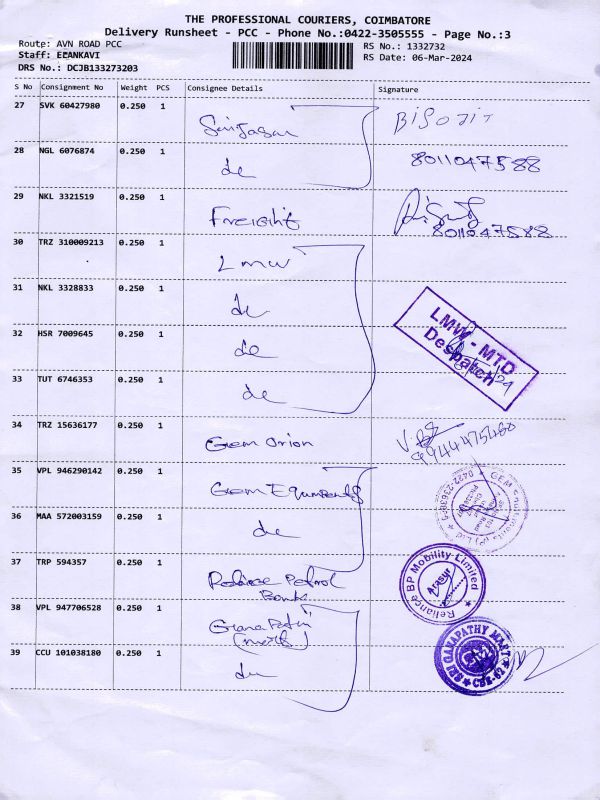 THE PROFESSIONAL COURIERS, COIMBATORE
Delivery Runsheet - PCC - Phone No.:0422-3505555 - Page No.:3
Route: AVN ROAD PCC
RS No.: 1332732
Staff: EEANKAVI
RS Date: 06-Mar-2024
DRS No.: DCJB133273203
S No Consignment No Weight PCS Consignee Details Signature
27 SVK 60427980 0.250 1
BISOJIT
28 NGL 6076874 0.250 1 do 8011047588
29 NKL 3321519 0.250 1 Freight
8011047588
30 TRZ 310009213 0.250 1 LMW
31 NKL 3328833 0.250 1 do
LMW - MTD
Despatch
32 HSR 7009645 0.250 1 do
33 TUT 6746353 0.250 1 do
34 TRZ 15636177 0.250 1 Gem Orion
9944475480
35 VPL 946290142 0.250 1 Gem Equpments
36 MAA 572003159 0.250 1 do
37 TRP 594357 0.250 1 Petrol
Bunk
Reliance BP Mobility Limited
Arasur
38 VPL 947706528 0.250 1
39 CCU 101038180 0.250 1 do
SRI GANAPATHY MART
CBE-62